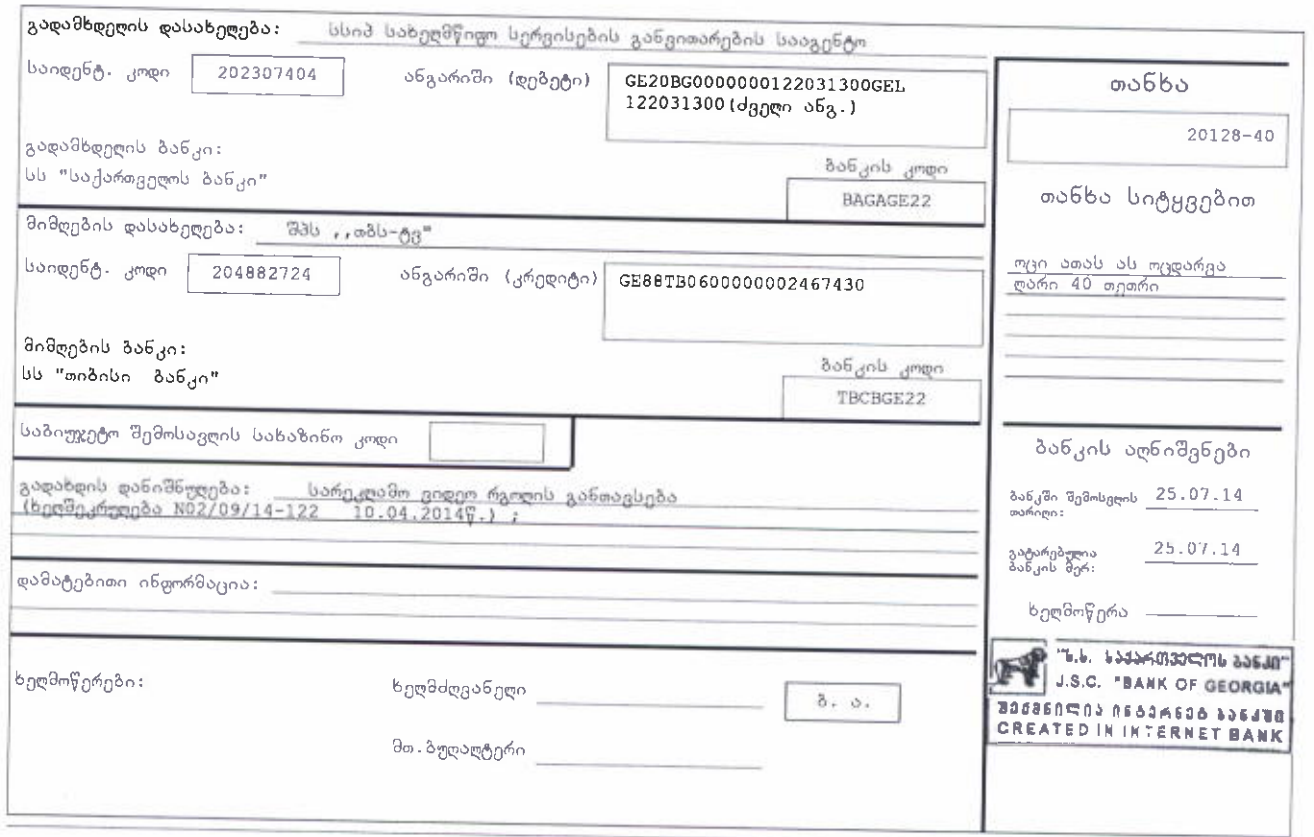 გადამხდელის დასახელება: სსიპ სახელმწიფო სერვისების განვითარების სააგენტო
საიდენტ. კოდი 202307404 ანგარიში (დებეტი) GE20BG0000000122031300GEL
122031300(ძველი ანგ.)
გადამხდელის ბანკი:
სს "საქართველოს ბანკი"
ბანკის კოდი
BAGAGE22
მიმღების დასახელება: შპს ,,თბს-ტვ"
საიდენტ. კოდი 204882724 ანგარიში (კრედიტი) GE88TB0600000002467430
მიმღების ბანკი:
სს "თიბისი ბანკი"
ბანკის კოდი
TBCBGE22
საბიუჯეტო შემოსავლის სახაზინო კოდი
გადახდის დანიშნულება: სარეკლამო ვიდეო რგოლის განთავსება
(ხელშეკრულება N02/09/14-122 10.04.2014წ.) ;
დამატებითი ინფორმაცია:
ხელმოწერები:
ხელმძღვანელი
ბ. ა.
მთ.ბუღალტერი
თანხა
20128-40
თანხა სიტყვებით
ოცი ათას ას ოცდარვა
ლარი 40 თეთრი
ბანკის აღნიშვნები
ბანკში შემოსვლის თარიღი: 25.07.14
გატარებულია ბანკის მერ: 25.07.14
ხელმოწერა
"ს.ს. საქართველოს ბანკი"
J.S.C. "BANK OF GEORGIA"
შექმნილია ინტერნეტ ბანკში
CREATED IN INTERNET BANK